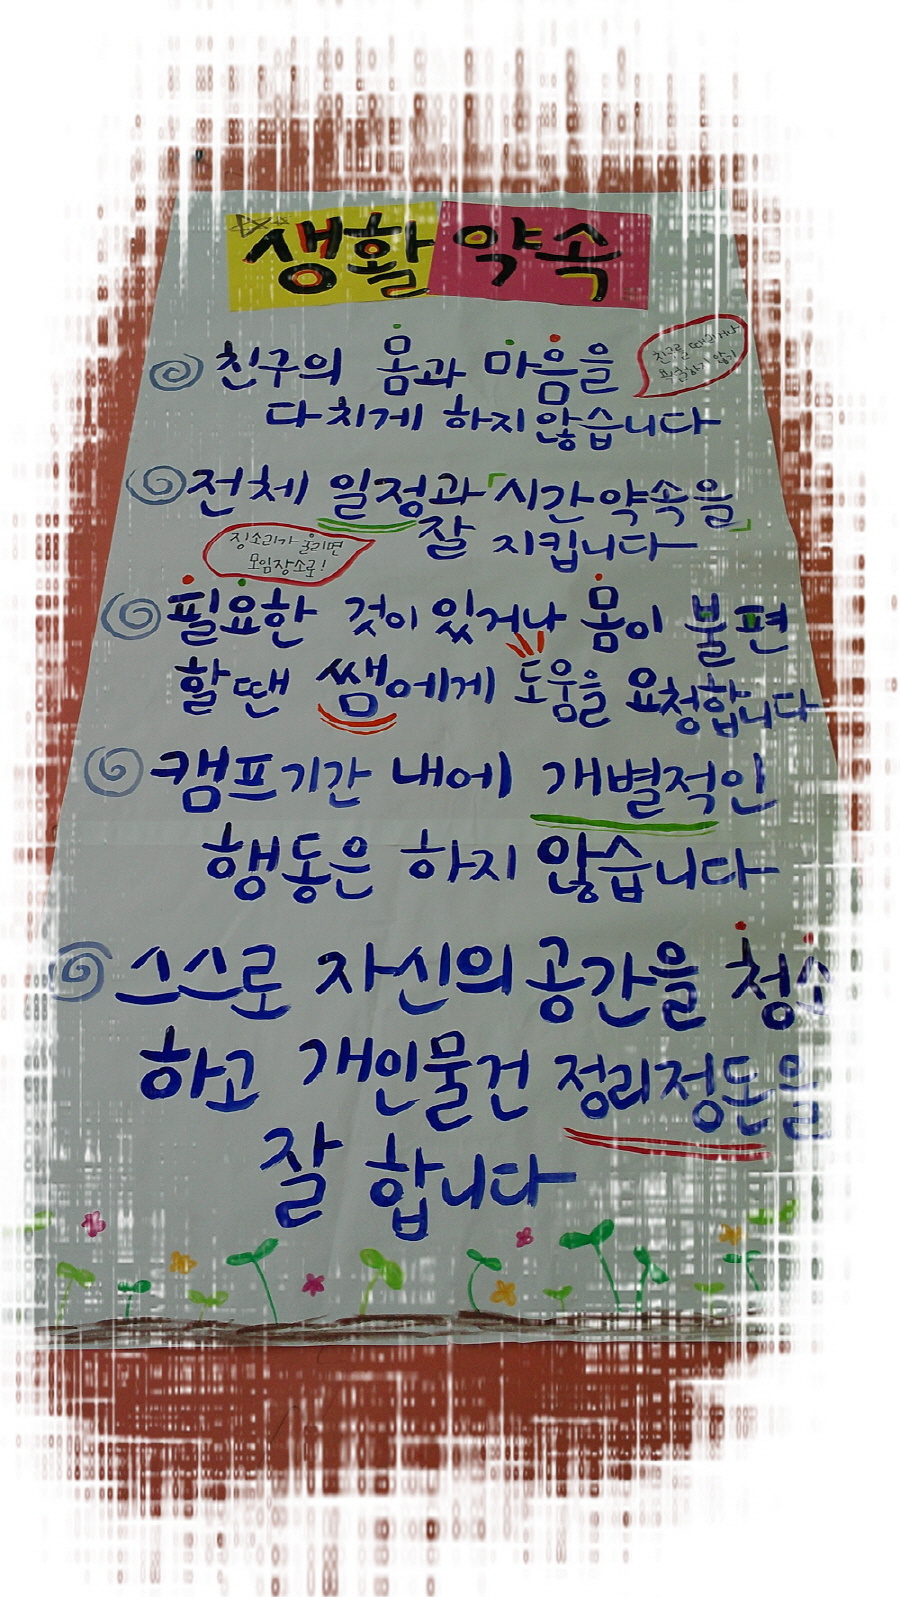 생활 약속
친구의 몸과 마음을
친구를 때리거나
욕설하지 않기
다치게 하지 않습니다
전체 일정과 「시간약속을」
잘 지킵니다
징소리가 울리면
모임장소로!
필요한 것이 있거나 몸이 불편
할땐 쌤에게 도움을 요청합니다
캠프기간 내에 개별적인
행동은 하지 않습니다
스스로 자신의 공간을 청소
하고 개인물건 정리정돈을
잘 합니다